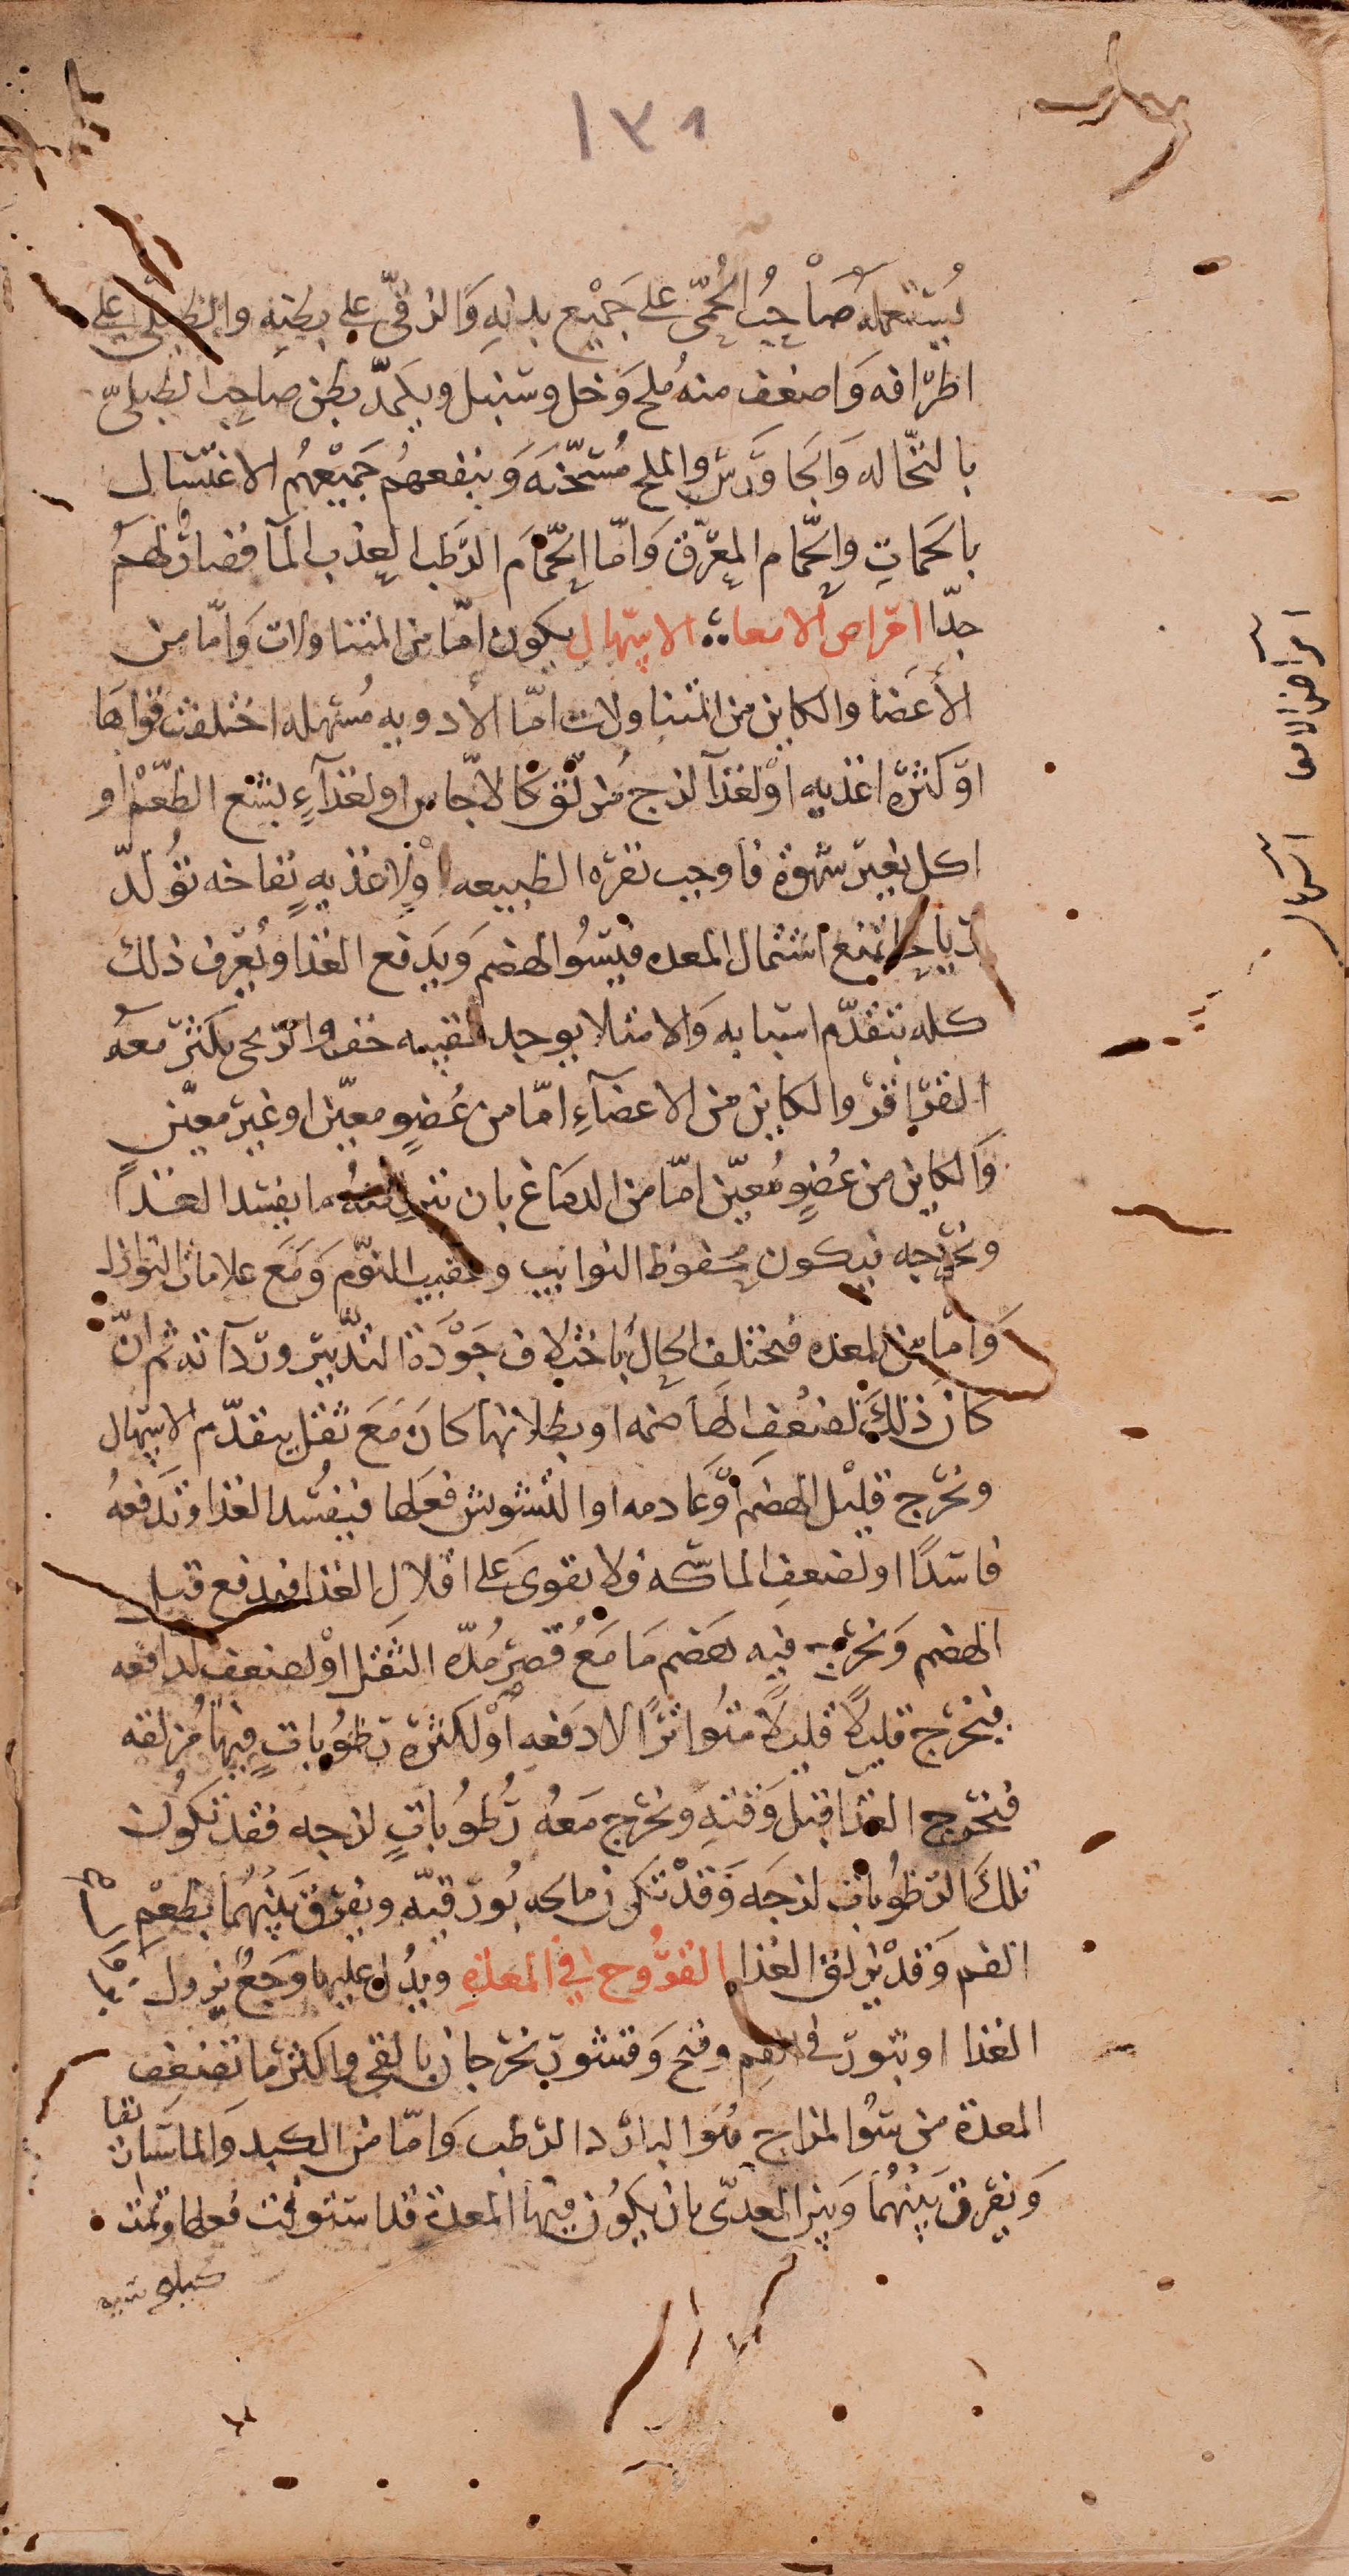 ١٣٨
يستعمله صَاحِبُ الحُمّى على جَميْع بدنِهِ وَالزقّى على بطنِه والطبلّى على
اطرافه وَاضعف منه مُلح وَخل وسنبل ويكمدّ بطن صاحِب الطبلىّ
بالنخّاله وَالجاوَرس والملح مُسَخّنَه وَينفعهُم جَميْعهُم الاغتسال
بالحمَاتِ والحمّام المعرّق وَامّا الحّمام الرَطب العذب المآ فضارٌ لهمُ
جدّا امراض الامعاء الاسهال يكون امّا من المتناولات وَامّا من
الأعَضا والكاين من المتناولات امّا الأدويه مُسهله اختلفت قواهَا
اوَ كثرة اغذيه اوَ لغذآ لزج مُزلّق كالاجّاص او لغذآءٍ بشع الطَعْم او
اكل بغير شهوة فاوجب نفره الطبيعه اوْ لاغذيهٍ نفاخه تُولدّ
رياحا تمنع اشتمال المعده فيَسُو الهضم وَيدفع الغذا ويُعرف ذلك
كله بتقدّم اسبابه وَالامتلا يوجد لقيه خف والريحى يكثر معهُ
القراقر والكاين من الاعضآءِ امّا من عُضوٍ معيّن او غير معيّن
وَالكاين من عُضوٍ مُعيّن امّا من الدمَاغ بان ينزل منهُ ما يفسد الغذاً
ويخرجه فيكون محفوظ النوايب وعقيب النوْم وَمَع علامات النوازل
وَامّا من المعده فيختلف الحالُ باختلاف جَوْدَة التدْبير وردآته ثم انّ
كانَ ذلكَ لضعُفِ الهَاضمه او بطلانها كانَ مَعَ ثقل يتقدّم الاسهال
ويخرج قليْل الهضم اوَّ عَادمه او لتشويش فعلها فيفسُد الغذا وَتدفعهُ
فاسَدًا او لضعفِ الماسكه فلا يقوىَ على اقلالِ الغذا فيدفع قبل
الهضم وَيخرج فيه هضم مَا مَعُ قصر مُدّه الثقل اوْ لضعف الدافعه
فيخرج قليلاً قليلاً متُواترًا لا دَفعه اوْ لكثرة رطوُباتٍ فيهَا مُزلقه
فيخرج الغذا قبل وَقتهِ ويخرج مَعهُ رُطوُباتٍ لزجه فقد تكوُن
تلكَ الرطوُبات لزجَه وَقدْ تكون مالحه بُورقيّه ويفرَق بَينَهُما بطعْم
الفم وَقدْ يزلق الغذا القرُوح فى المعدَهِ ويدُل عليها وجَعُ نزول
الغذا او بثور فى الفم وقيح وَقشور يَخرجان بالقى واكثر ما تضعف
المعدة من سُو المزاج هُوَ البارد الرطب وَامّا من الكبد والماساريقا
وَيفرق بَينهُمَا وَبين المعدّى بان يكوُن فيهَا المعدة قد استوفت فعلها وتمّت
كيلوسيه